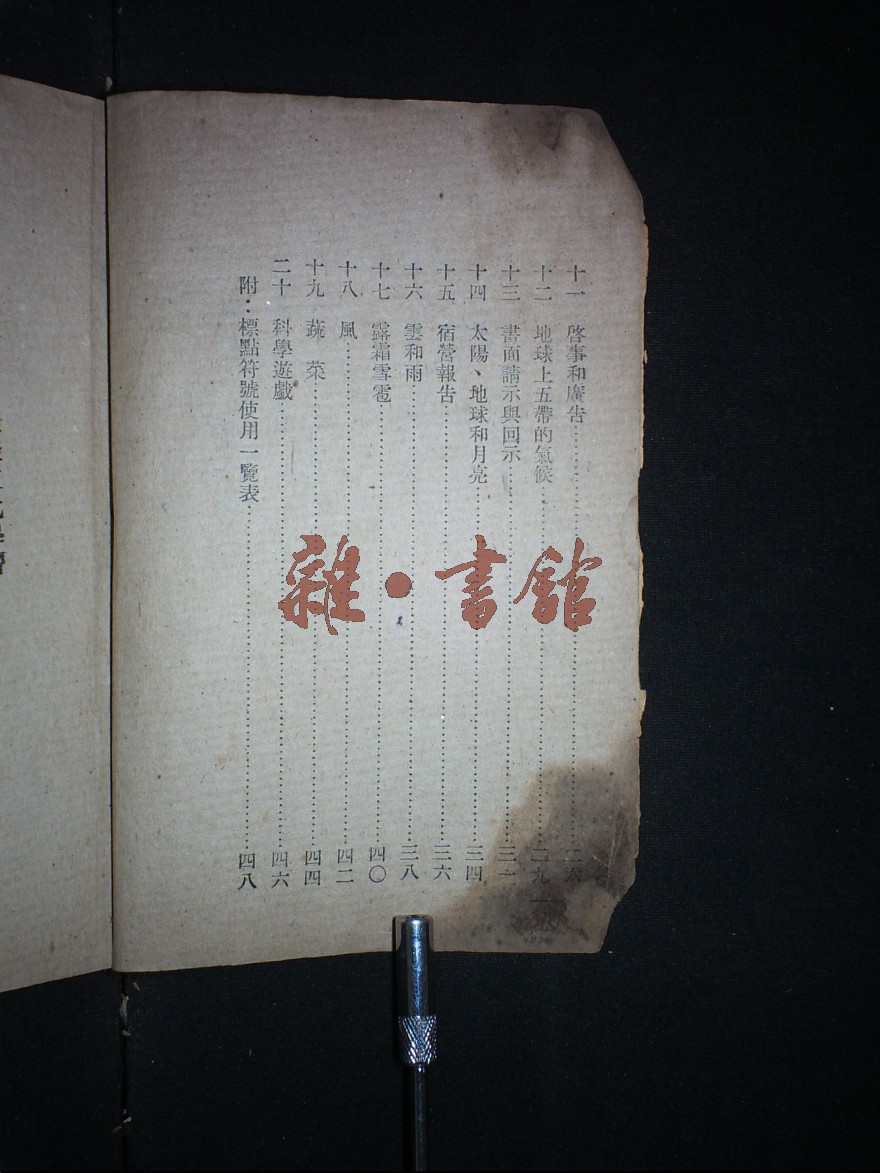 十一 啓事和廣告……二六
十二 地球上五帶的氣候……二九
十三 書面請示與回示……三一
十四 太陽、地球和月亮……三四
十五 宿營報告……三六
十六 雲和雨……三八
十七 露霜雪雹……四〇
十八 風……四二
十九 蔬菜……四四
二十 科學遊戲……四六
附:標點符號使用一覽表……四八
雜·書館